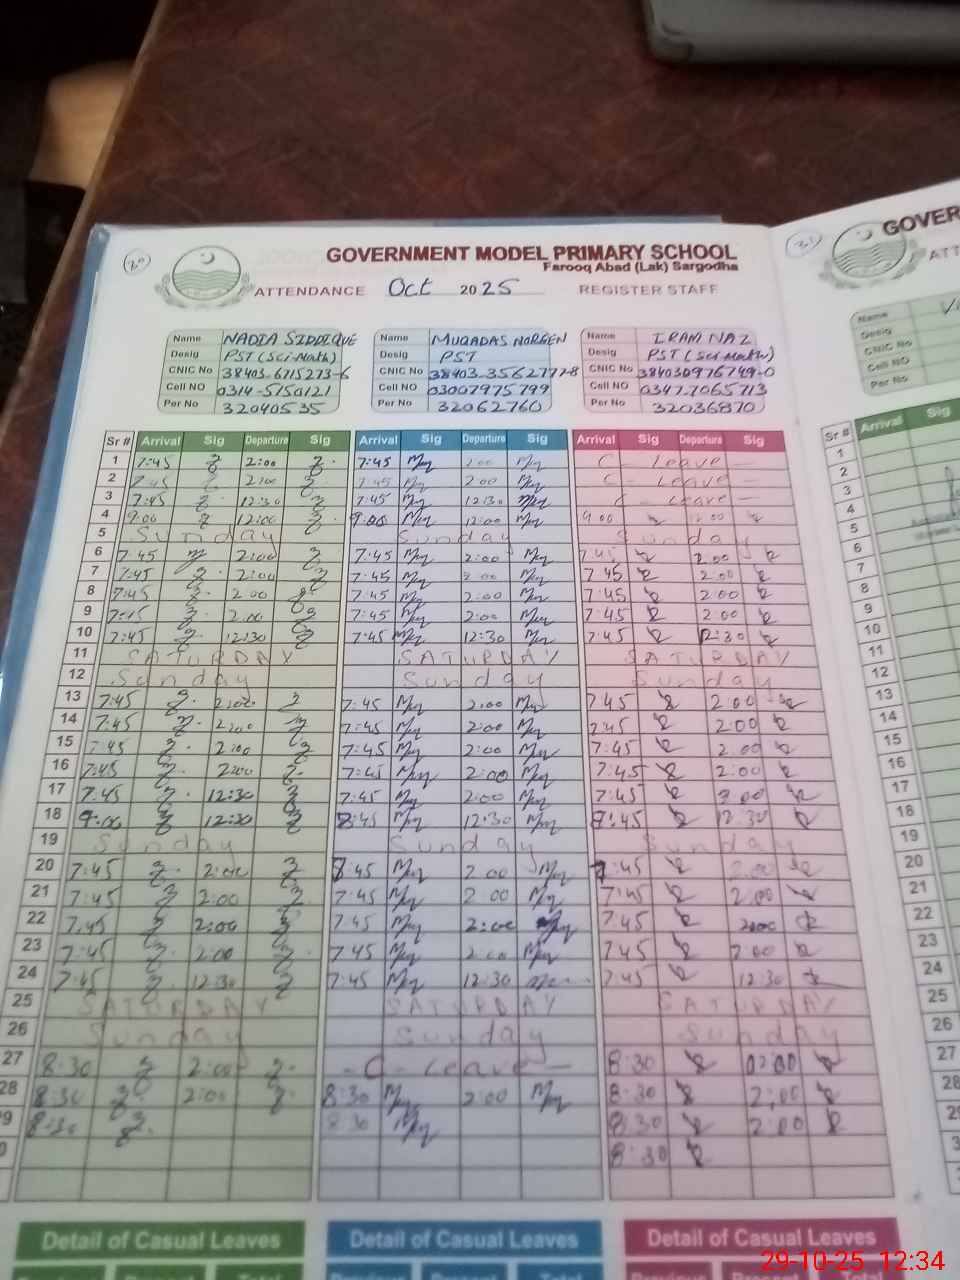 30
GOVERNMENT MODEL PRIMARY SCHOOL
Farooq Abad (Lak) Sargodha
ATTENDANCE Oct 2025 REGISTER STAFF
31
GOVER
ATT
Name NADIA SIDDIQUE Name MUQADAS NORGEN Name IRAM NAZ
Desig PST (Sci-Math) Desig PST Desig PST (Sci-Math)
CNIC No 38403-6715273-6 CNIC No 38403-3562777-8 CNIC No 384030976749-0
Cell NO 0314-5750121 Cell NO 03007975799 Cell NO 0347.7065713
Per No 32040535 Per No 32062760 Per No 32036870
Name
Desig
CNIC No
Cell NO
Per No
Sr # Arrival Sig Departure Sig Arrival Sig Departure Sig Arrival Sig Departure Sig
Sr # Arrival Sig
1 7:45 2:00 7:45 2:00 C - Leave -
2 7:45 2:00 7:45 2:00 C - Leave -
3 7:45 12:30 7:45 12:30 C - Leave -
4 9:00 12:00 9:00 12:00 9:00 12:00
5 Sunday Sunday Sunday
6 7:45 2:00 7:45 2:00 7:45 2:00
7 7:45 2:00 7:45 2:00 7:45 2:00
8 7:45 2:00 7:45 2:00 7:45 2:00
9 7:45 2:00 7:45 2:00 7:45 2:00
10 7:45 12:30 7:45 12:30 7:45 12:30
11 SATURDAY SATURDAY SATURDAY
12 Sunday Sunday Sunday
13 7:45 2:00 7:45 2:00 7:45 2:00
14 7:45 2:00 7:45 2:00 7:45 2:00
15 7:45 2:00 7:45 2:00 7:45 2:00
16 7:45 2:00 7:45 2:00 7:45 2:00
17 7:45 12:30 7:45 2:00 7:45 2:00
18 9:00 12:30 8:45 12:30 12:30
19 Sunday Sunday Sunday
20 7:45 2:00 7:45 2:00 7:45 2:00
21 7:45 2:00 7:45 2:00 7:45 2:00
22 7:45 2:00 7:45 2:00 7:45 2:00
23 7:45 2:00 7:45 2:00 7:45 2:00
24 7:45 12:30 7:45 12:30 7:45 12:30
25 SATURDAY SATURDAY SATURDAY
26 Sunday Sunday Sunday
27 8:30 2:00 - C - Leave - 8:30 02:00
28 8:30 2:00 8:30 2:00 8:30 2:00
9 8:30 8:30 8:30 2:00
0 8:30
1
2
3
4
5
6
7
8
9
10
11
12
13
14
15
16
17
18
19
20
21
22
23
24
25
26
27
28
Detail of Casual Leaves Detail of Casual Leaves Detail of Casual Leaves
29-10-25 12:34